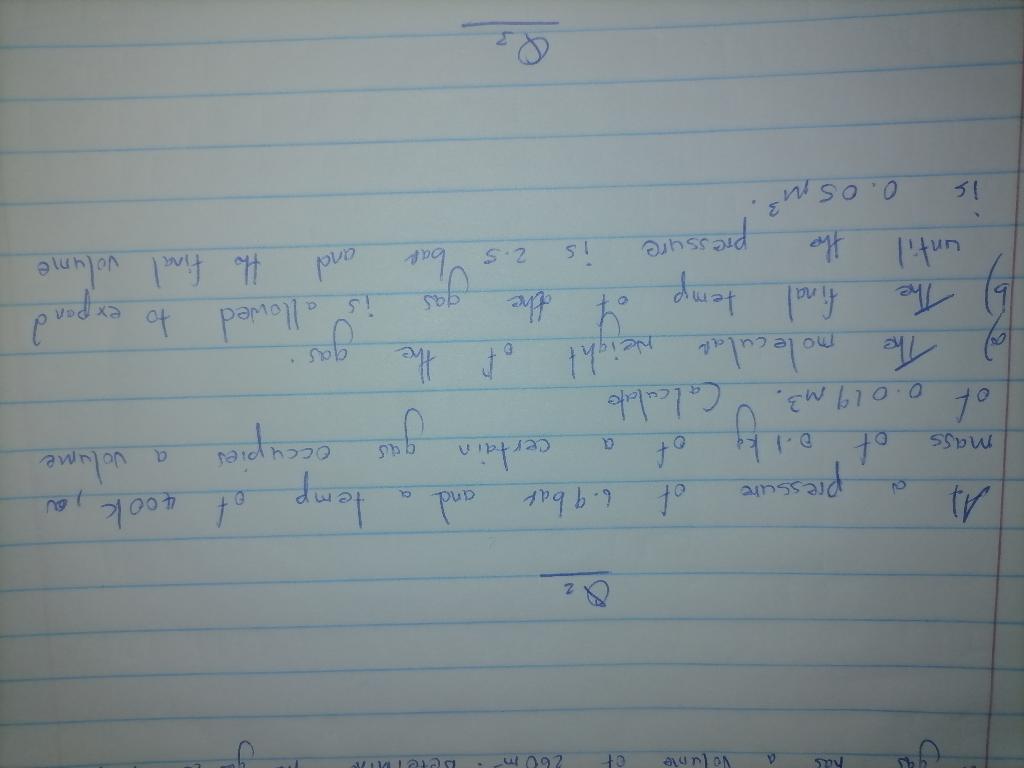 gas has a volume of 260m³. Determine
Q2
At a pressure of 6.9 bar and a temp of 400k, a
mass of 0.1kg of a certain gas occupies a volume
of 0.019 m3. Calculate
a) The molecular weight of the gas.
b) The final temp of the gas is allowed to expand
until the pressure is 2.5 bar and the final volume
is 0.05 m³.
Q3